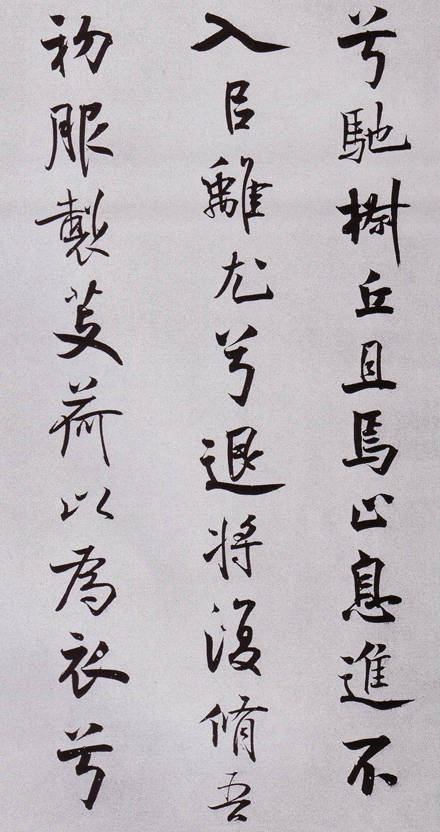 兮馳椒丘且焉止息進不
入㠯離尤兮退將復脩吾
初服製芰荷以為衣兮